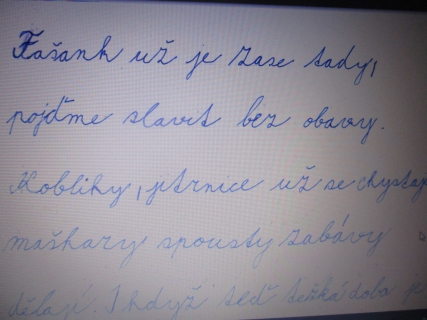 Fašank už je zase tady,
pojďme slavit bez obavy.
Koblihy, jitrnice už se chystají
maškary spousty zábávy
dělají. I když teď těžká doba je